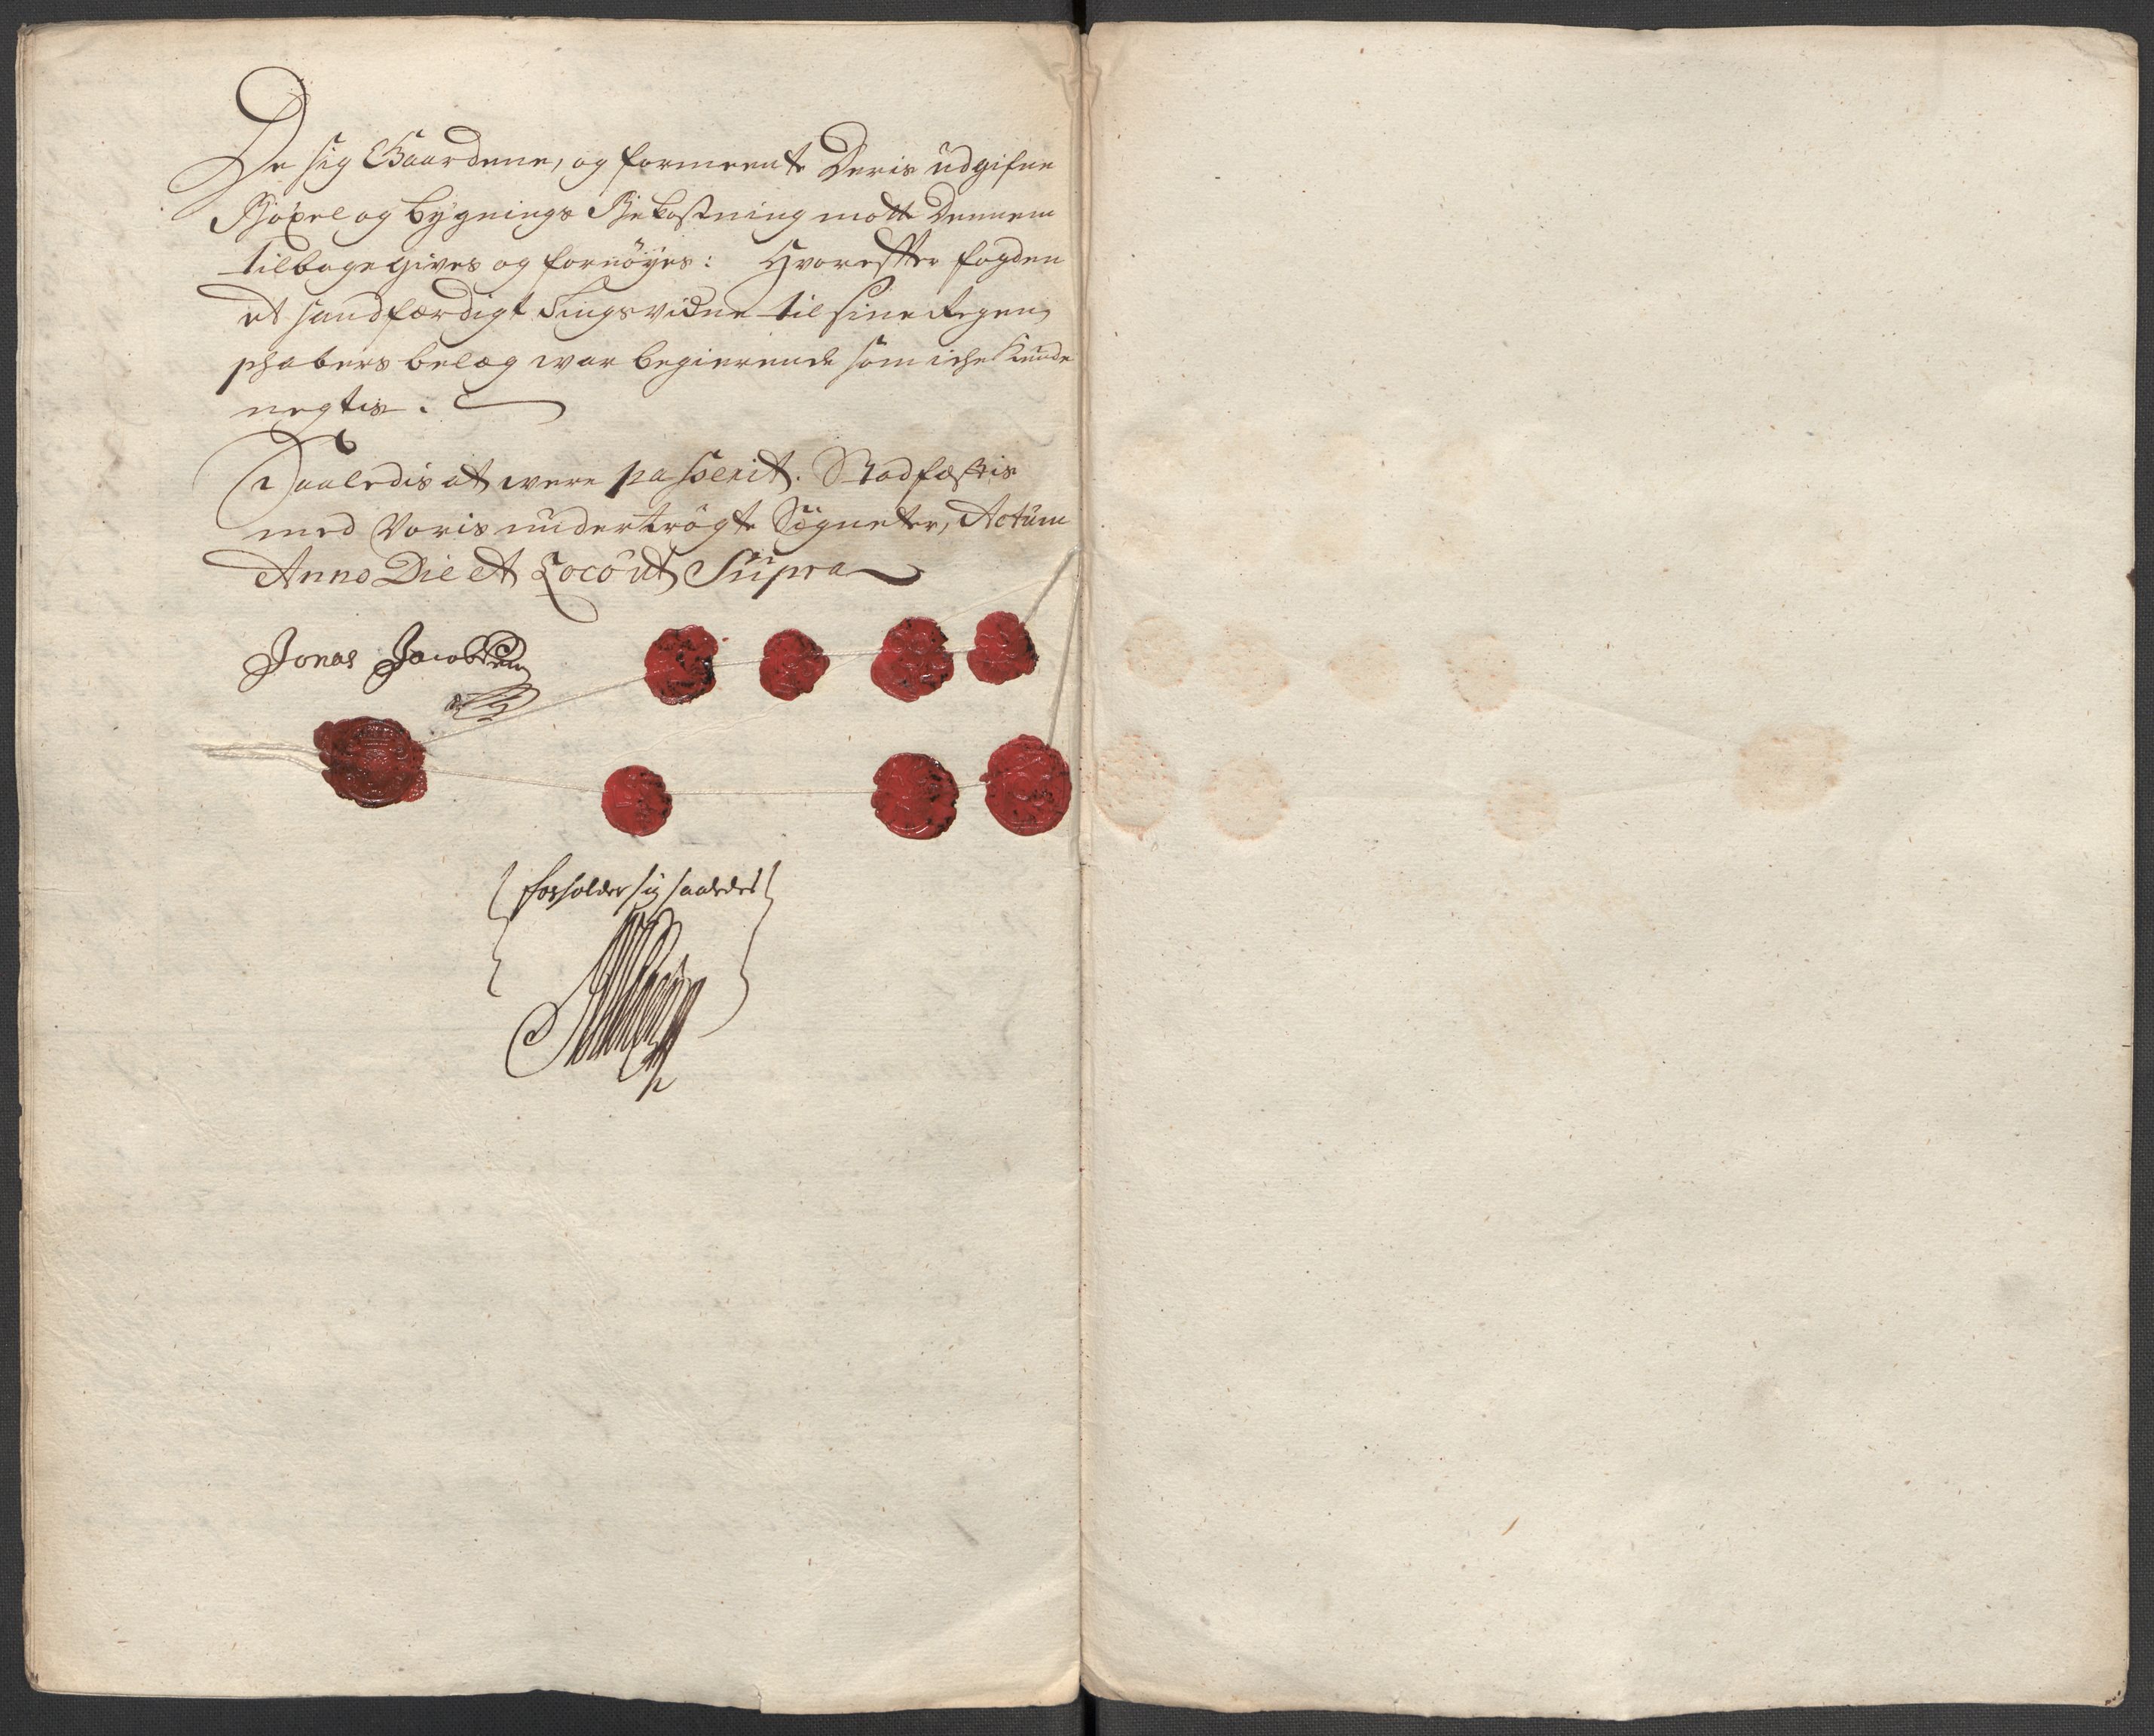 De sig Gaardene, og formeente Deris udgifne
Böxel og bygnings Bekostning motte Dennem
tilbage gives og fornöyes: Hvorefter fogden
et sandfærdigt Tingsvidne til sine Regen,,
schabers belæg war begierende som iche kunde
negtis.
Saaledis at were passerit. Stadfæstis
med Voris undertrögte Signeter, Actum
Anno Die et Loco ut Supra
Jonas Jacobsen
forholder sig saaledes